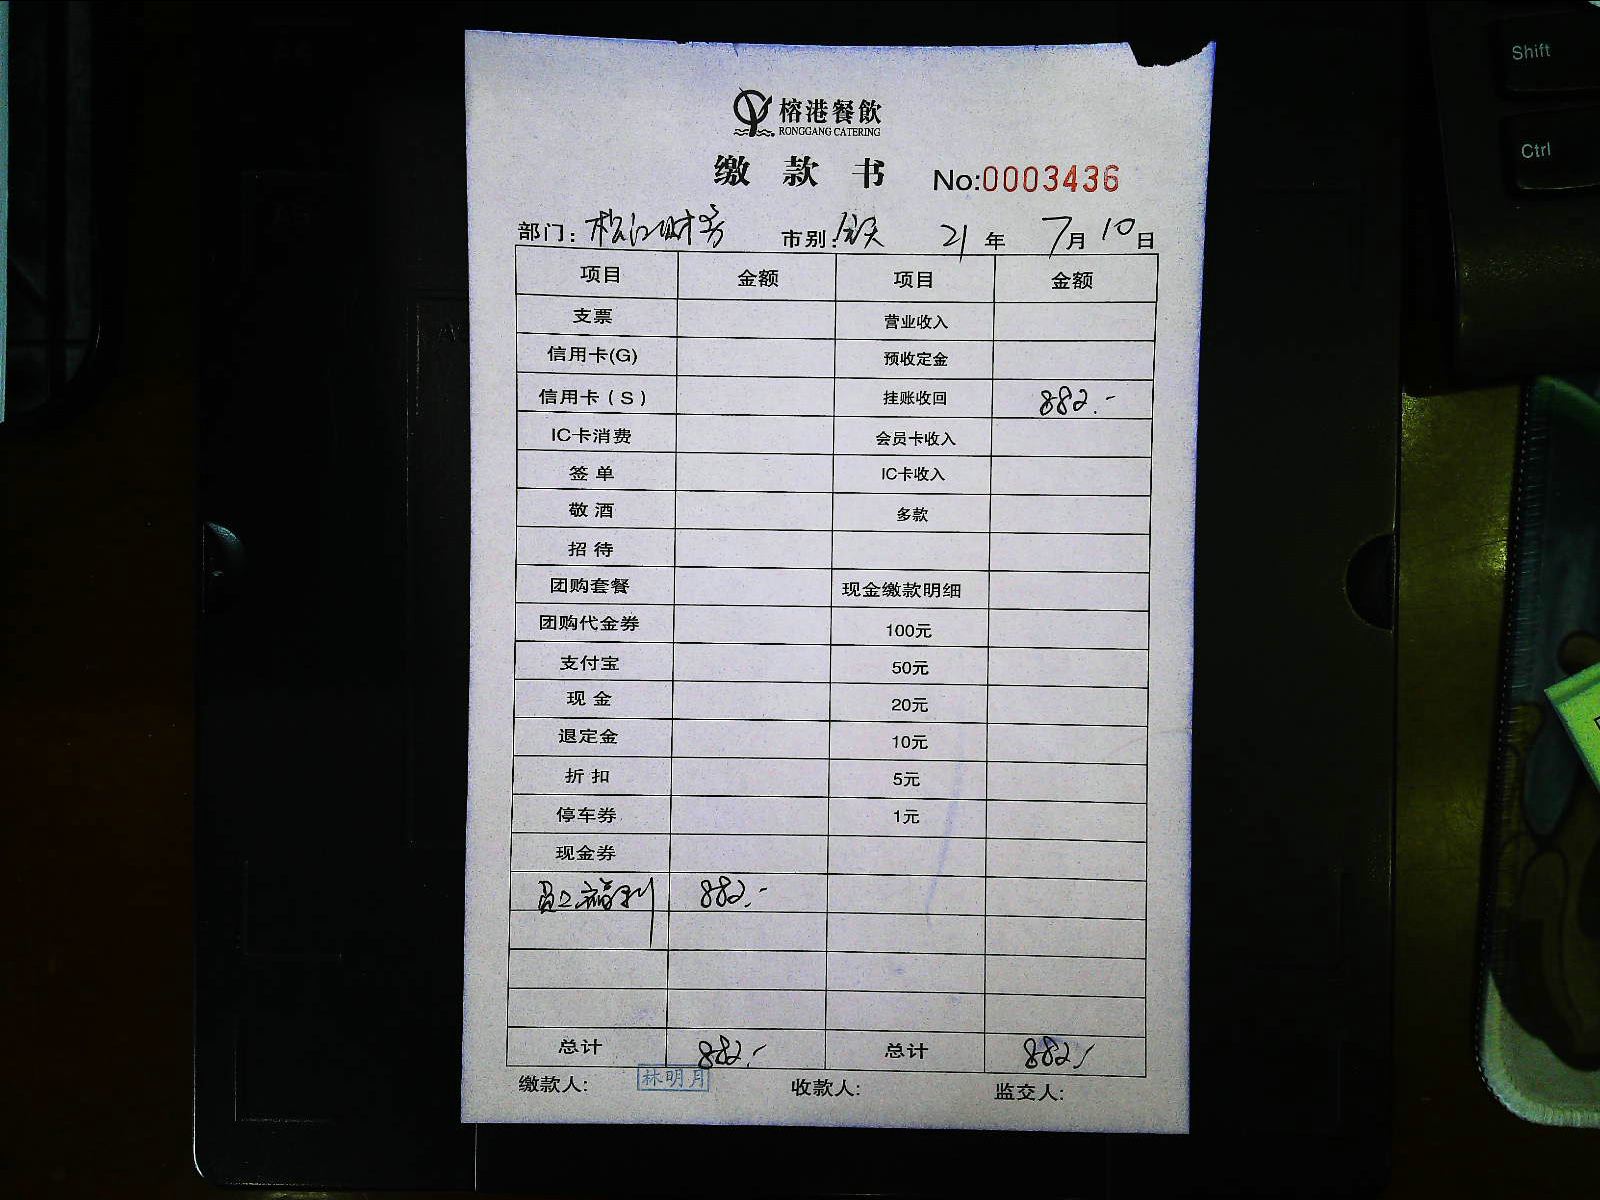 榕港餐飲
RONGGANG CATERING
缴款书 No:0003436
部门: 松江财务 市别: 全天 21年 7月 10日
项目 金额 项目 金额
支票 营业收入
信用卡(G) 预收定金
信用卡(S) 挂账收回 882.-
IC卡消费 会员卡收入
签单 IC卡收入
敬酒 多款
招待
团购套餐 现金缴款明细
团购代金券 100元
支付宝 50元
现金 20元
退定金 10元
折扣 5元
停车券 1元
现金券
员工福利 882.-
总计 882.- 总计 882.-
缴款人: 林明月 收款人: 监交人:
Shift
Ctrl